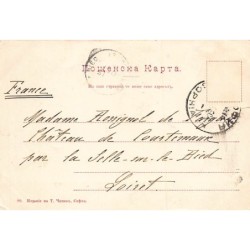 Пощенска Карта.
На тази страница се пише само адресътъ.
France
Madame Rossignol de
Château de Courtemaux
par la Selle-sur-le-Bied
Loiret
Издание на Т. Чипевъ, София.